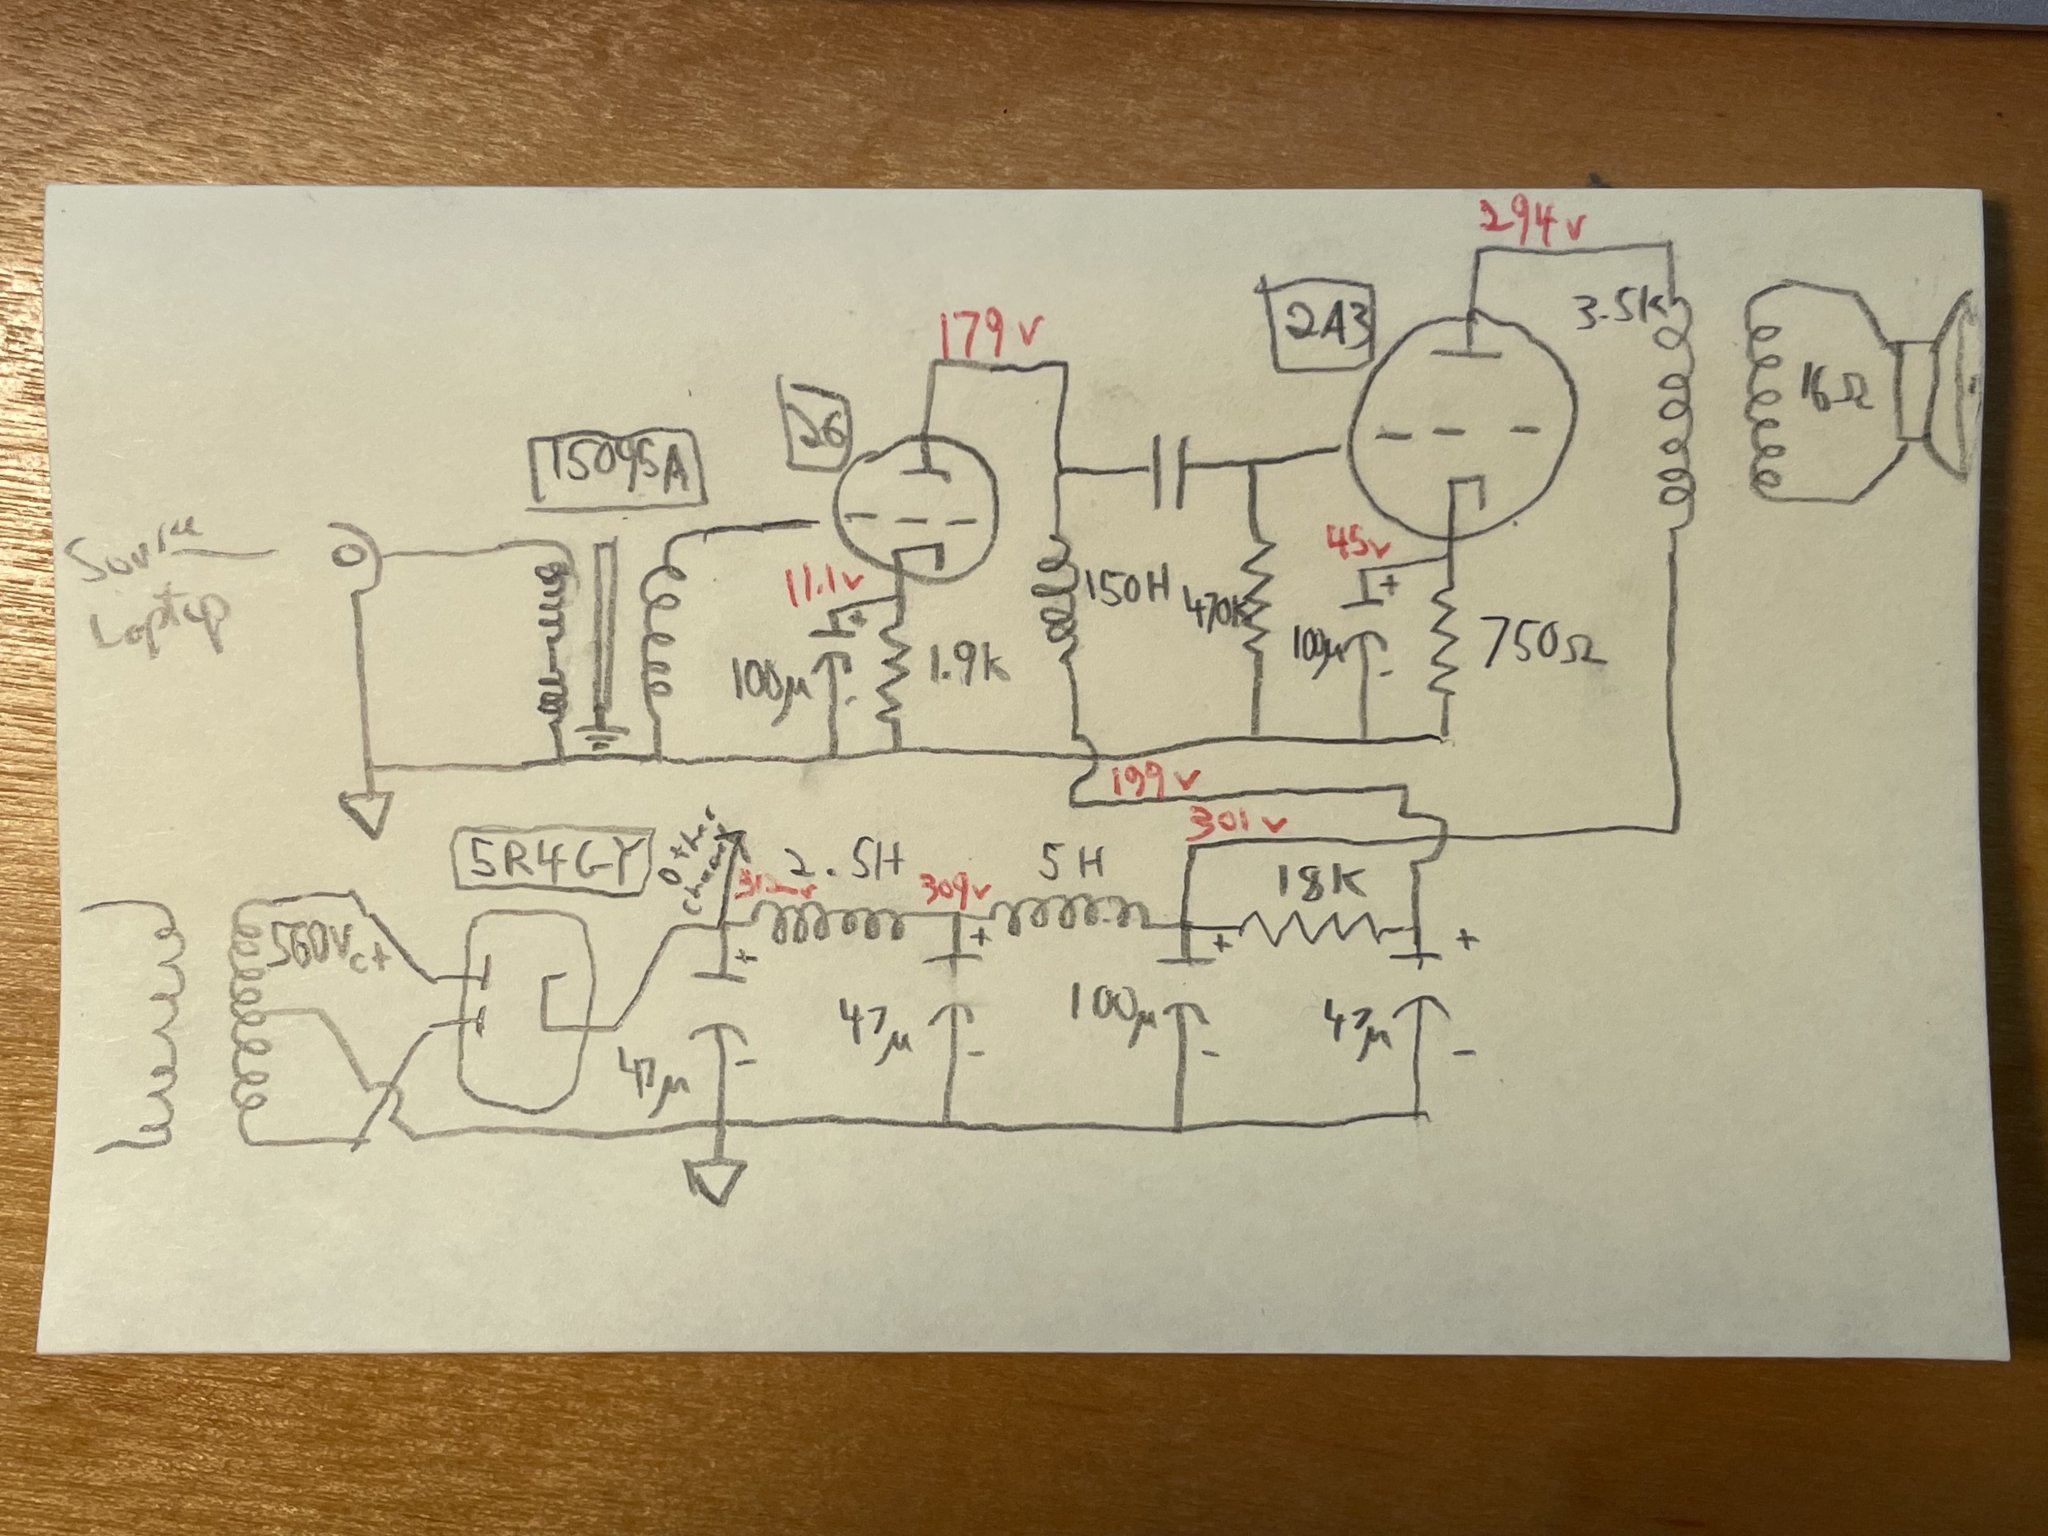 294v
2A3
3.5K
16Ω
179v
26
T5095A
Source
Laptop
11.1v
100μ
1.9K
150H
470K
45v
100μ
750Ω
199v
301v
5R4GY
Other
2.5H
309v
5H
18K
560Vct
+
+
+
+
47μ
-
47μ
-
100μ
-
47μ
-